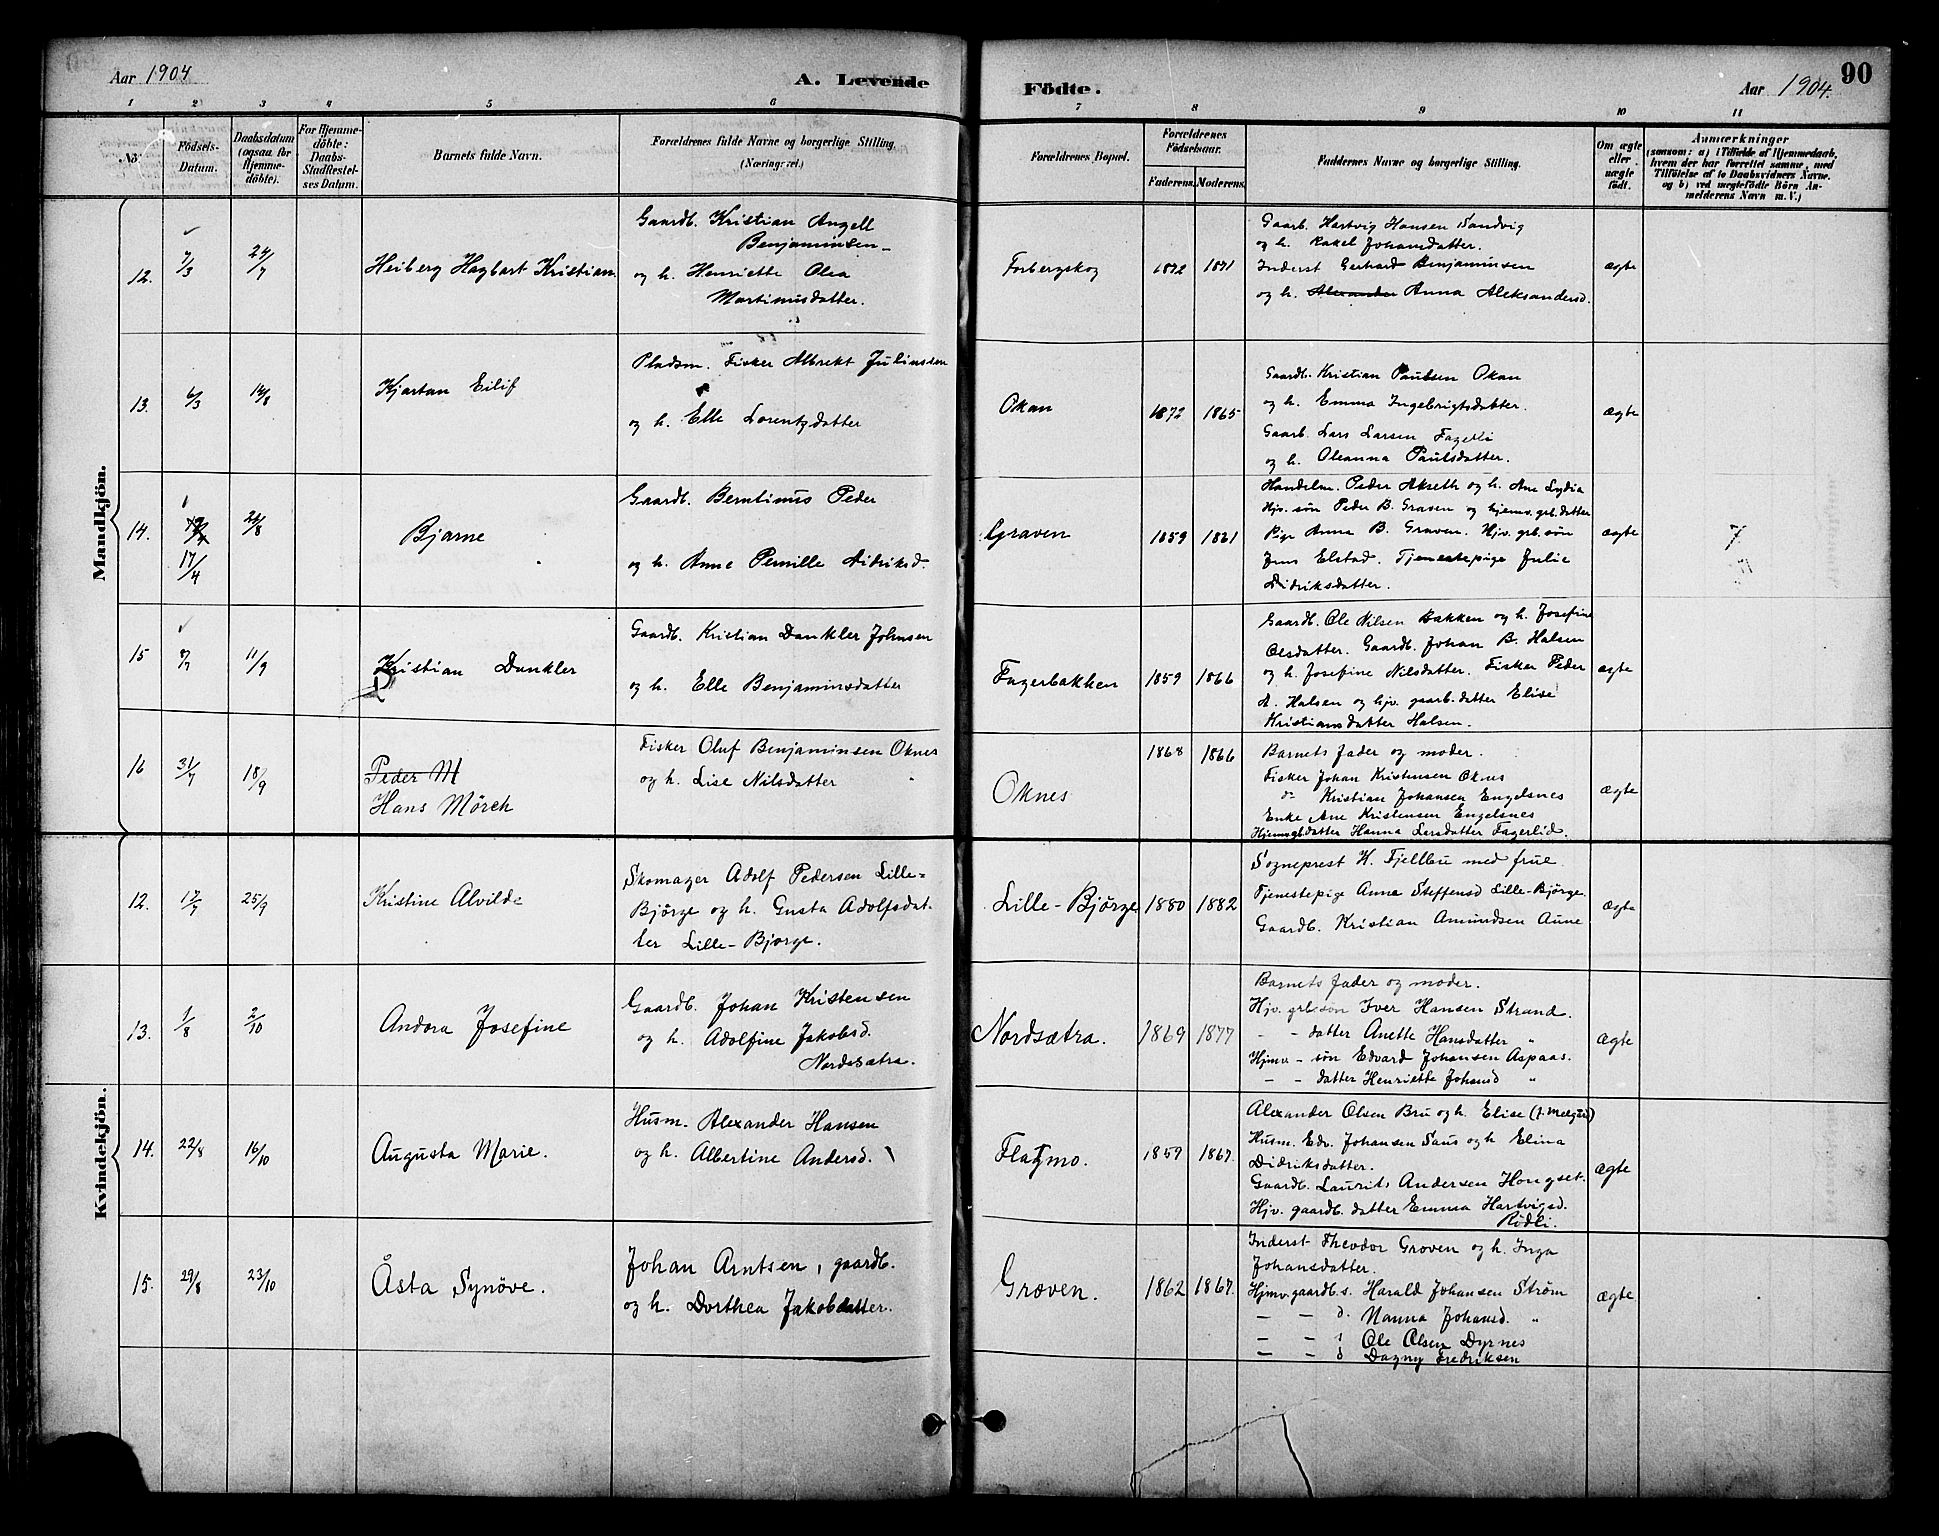 Aar 1904
A. Levende
Födte.
Aar 1904.
90
1 2 3 4 5 6 7 8 9 10 11
No.
Födsels-
Datum.
Daabsdatum
(ogsaa for
Hjemme-
döbte).
For Hjemme-
döbte:
Daabs-
Stadfæstel-
ses Datum.
Barnets fulde Navn.
Forældrenes fulde Navne og borgerlige Stilling.
(Næringsvei.)
Forældrenes Bopæl.
Forældrenes
Födselsaar.
Faderens. Moderens.
Faddernes Navne og borgerlige Stilling.
Om ægte
eller
uægte
födt.
Anmærkninger
(saasom: a) i Tilfælde af Hjemmedaab,
hvem der har forrettet samme, med
Tilföielse af to Daabsvidners Navne,
og b) ved uægtefödte Börn An-
melderens Navn m. V.)
Mandkjön.
12.
7/3
24/7
Heiberg Hagbart Kristian
Gaardb. Kristian Angell
Benjaminsen
og h. Henriette Olea
Martinusdatter.
Forbergskog
1872 1871
Gaarb. Hartvig Hansen Sandvig
og h. Rakel Johansdatter.
Inderst Gerhard Benjaminsen
og h. Alexander Anna Aleksandersd.
ægte
13.
6/3
14/8
Kjartan Eilif
Pladsm. Fisker Albrekt Julinssen
og h. Elle Lorentzdatter
Okan
1872 1865
Gaardb. Kristian Paulsen Okan
og h. Emma Ingebrigtsdatter.
Gaarb. Lars Larsen Fagerli
og h. Oleanna Paulsdatter.
ægte
14.
17/4
21/8
Bjarne
Gaardb. Berntinus Peder
og h. Anne Pernille Didriksd.
Graven
1859 1861
Handelm. Peder Akseth og h. Ane Lydia
Hjv. søn Peder B. Graven og hjemv. grb. datter
Pige Anna B. Graven. Hjv. grb. søn
Jens Elstad. Tjenestepige Julie
Didriksdatter.
ægte
7
15
7/7
11/9
Kristian Dankler
Gaardb. Kristian Dankler Johnsen
og h. Elle Benjaminsdatter
Fagerbakken
1859 1866
Gaardb. Ole Nilsen Bakken og h. Josefine
Olsdatter. Gaardb. Johan B. Halsen
og h. Josefine Nilsdatter. Fisker Peder
A. Halsen og hjv. gaarb. datter Elise
Kristiansdatter Halsen.
ægte
16
31/7
18/9
Peder M
Hans Mörch
Fisker Oluf Benjaminsen Oknes
og h. Lise Nilsdatter
Oknes
1868 1866
Barnets fader og moder.
Fisker Johan Kristensen Oknes
do Kristian Johansen Engelsnes
Enke Ane Kristensen Engelsnes
Hjemv gb datter Hanna Larsdatter Fagerlid.
ægte
Kvindekjön.
12.
17/7
25/9
Kristine Alvilde
Skomager Adolf Pedersen Lille-
Bjørge og h. Gusta Adolfsdat-
ter Lille-Bjørge.
Lille-Bjørge
1880 1882
Sogneprest H. Fjellbu med frue.
Tjenestepige Anna Steffensd Lille-Bjørge.
Gaardb. Kristian Amundsen Aune
ægte
13.
1/8
2/10
Andora Josefine
Gaardb. Johan Kristensen
og h. Adolfine Jakobsd.
Nordsætra.
Nordsætra.
1869 1877
Barnets fader og moder.
Hjv. grb. søn Iver Hansen Strand.
— - datter Anette Hansdatter "
Hjmv - søn Edvard Johansen Aspaas.
— - datter Henriette Johansd "
ægte
14.
22/8
16/10
Augusta Marie.
Husm. Alexander Hansen
og h. Albertine Andersd.
Flatmo.
1859 1867.
Alexander Olsen Bru og h. Elise
Husm. Edv. Johansen Saus og h Elina
Didriksdatter.
Gaardb. Laurits Andersen Hongset.
Hjv. gaardb. datter Emma Hartvigsd.
Rødli.
ægte
15.
29/8
23/10
Åsta Synöve.
Johan Arntsen, gaardb.
og h. Dorthea Jakobdatter.
Græven.
1862 1867.
Inderst Theodor Groven og h. Inga
Johansdatter.
Hjmv. gaardb. s. Harald Johansen Strøm
— — d. Nanna Johansd. "
— — s Ole Olsen Dyrnes
— — d Dagny Fredriksen
ægte